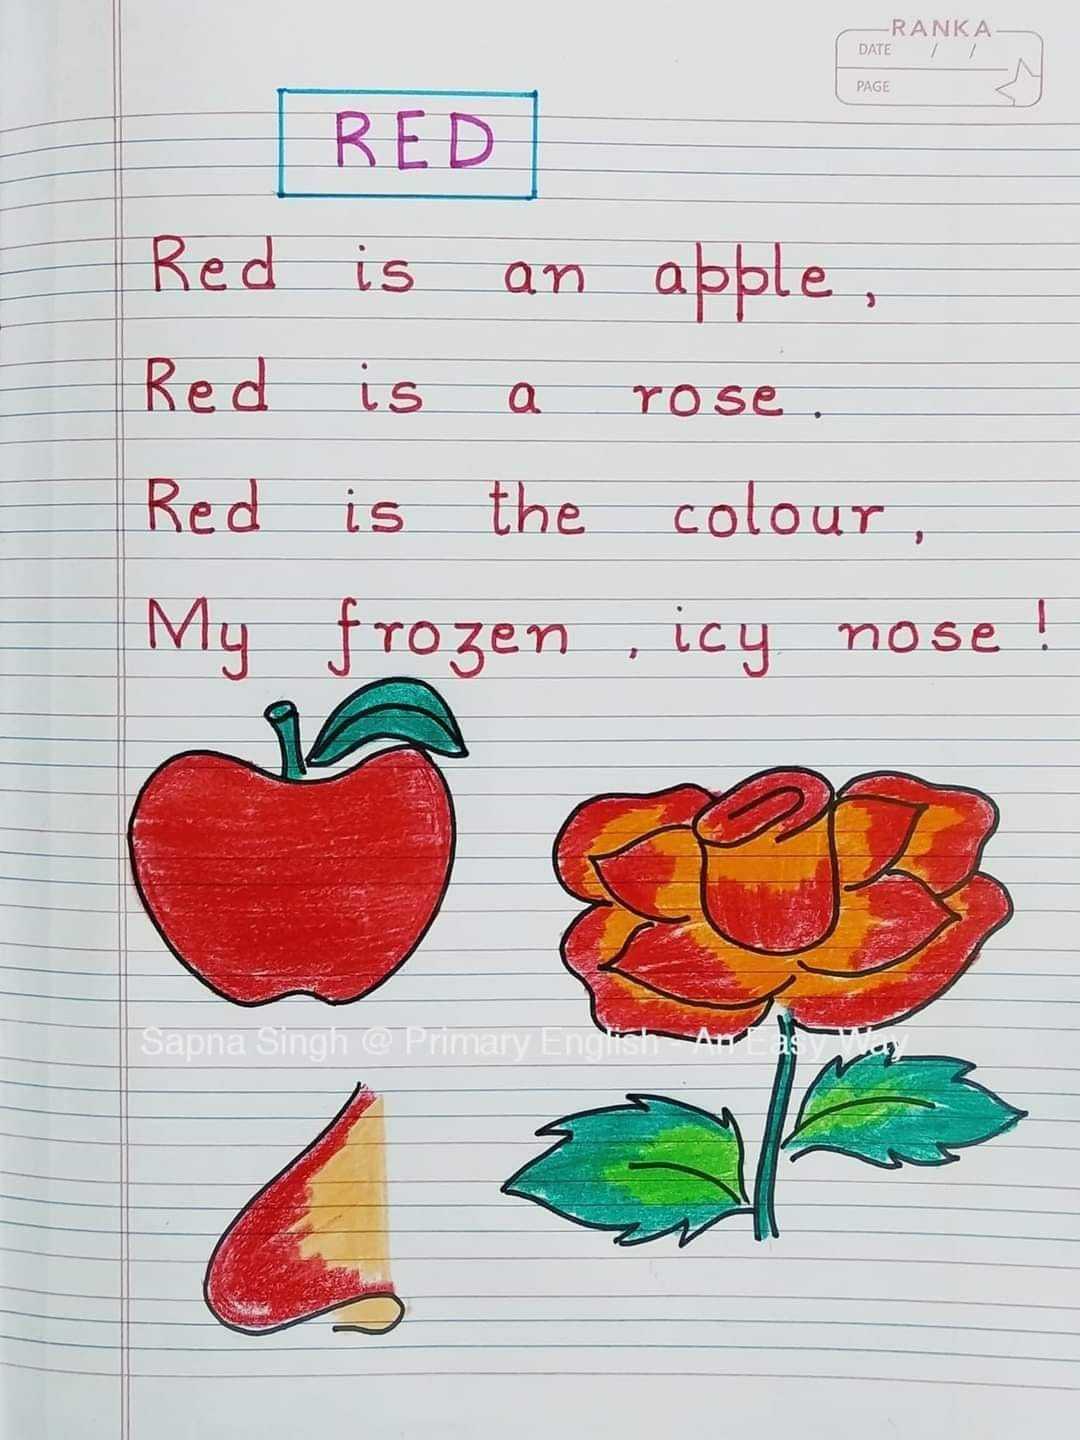 RANKA
DATE / /
PAGE
RED
Red is an apple,
Red is a rose.
Red is the colour,
My frozen, icy nose!
Sapna Singh @ Primary English - An Easy Way